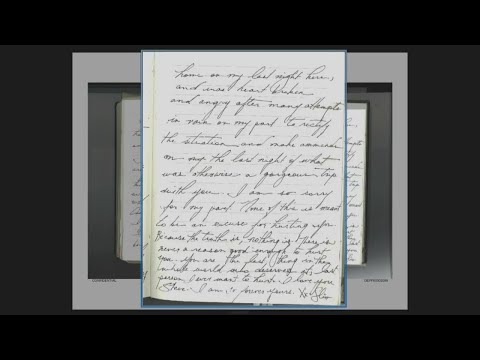 home on my last night here,
and was heart broken
and angry after many attempts
in vain on my part to rectify
the situation and make ammends
on my the last night of what
was otherwise a gorgeous trip
with you. I am so sorry
for my part. None of this is meant
to be an excuse for hurting you
Because the truth is nothing is. There is
never a reason good enough to hurt
you. You are the last thing in the
whole world who deserves it, last
person I ever want to hurt. I love you
Steve. I am, & forever yours. Xx
CONFIDENTIAL
DEPP00000